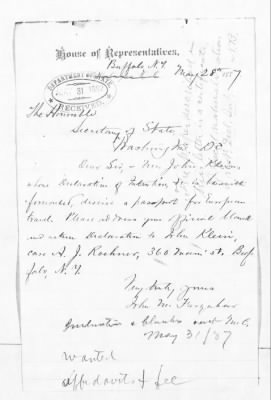 House of Representatives,
Buffalo, N.Y. May 28th 1887
DEPARTMENT OF STATE
MAY 31 1887
RECEIVED
The Honorable
Secretary of State
Washington D.C.
Dear Sir, - Mr. John Klein,
whose Declaration of Intention is herewith
forwarded, desires a passport for European
travel. Please address your official blank
and return Declaration to John Klein,
care A. J. 360 Main St. Buf
falo, N.Y.
Very truly, yours
John M. Farquhar
& blanks sent M.C.
May 31/87
Wanted
affidavits & fee